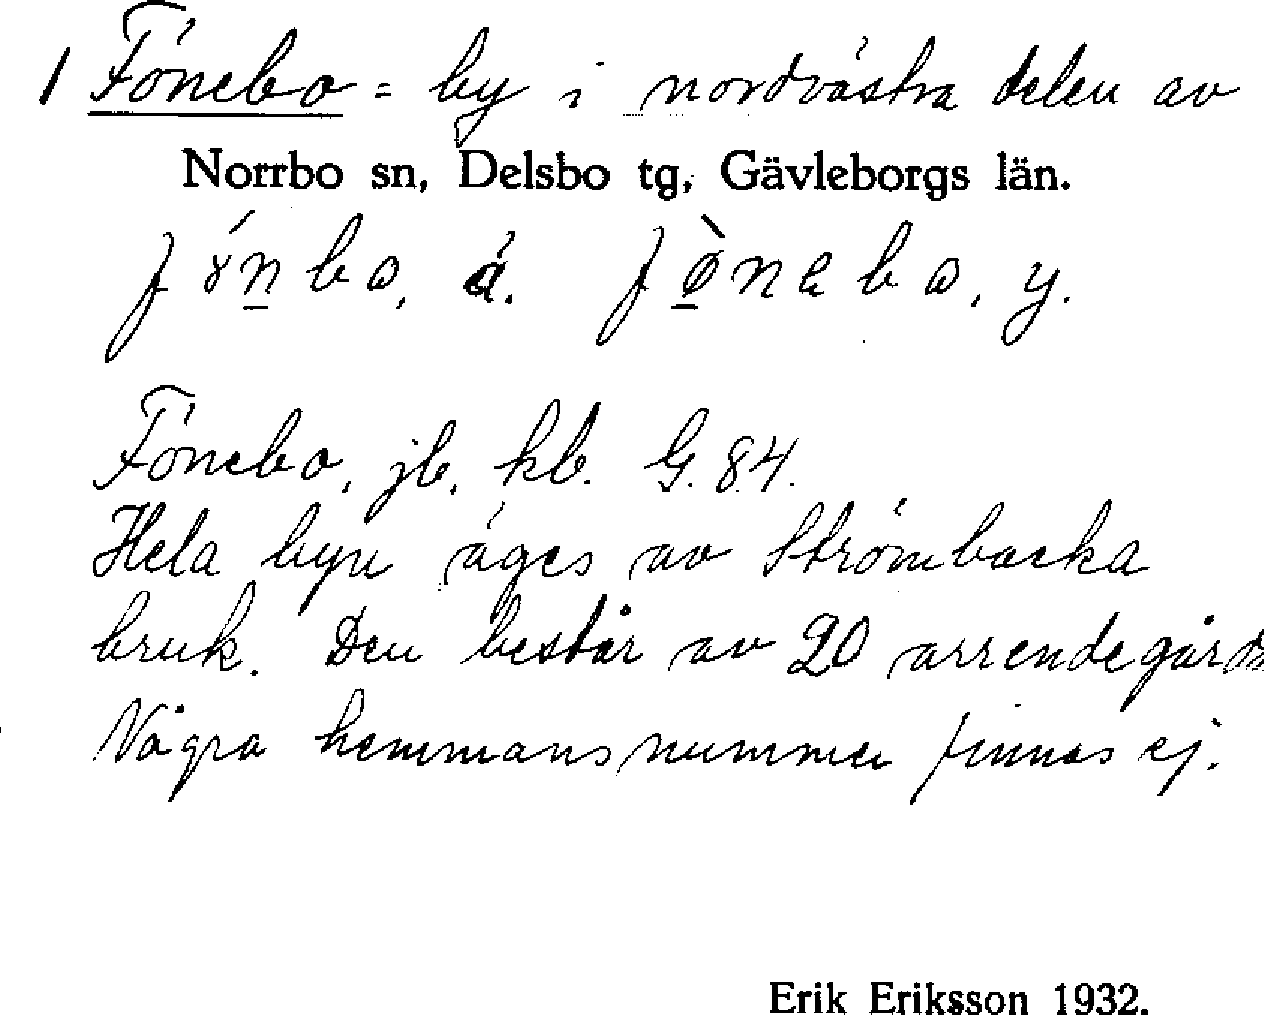 1 Fönebo = by i nordvästra delen av
Norrbo sn, Delsbo tg, Gävleborgs län.
fɤ́n̲bo, ä. fø̲̀nebo, y.
Fönebo, jb, kb. G. 84.
Hela byn äges av Strömbacka
bruk. Den består av 20 arrendegårdar
Några hemmansnummer finnas ej.
Erik Eriksson 1932.